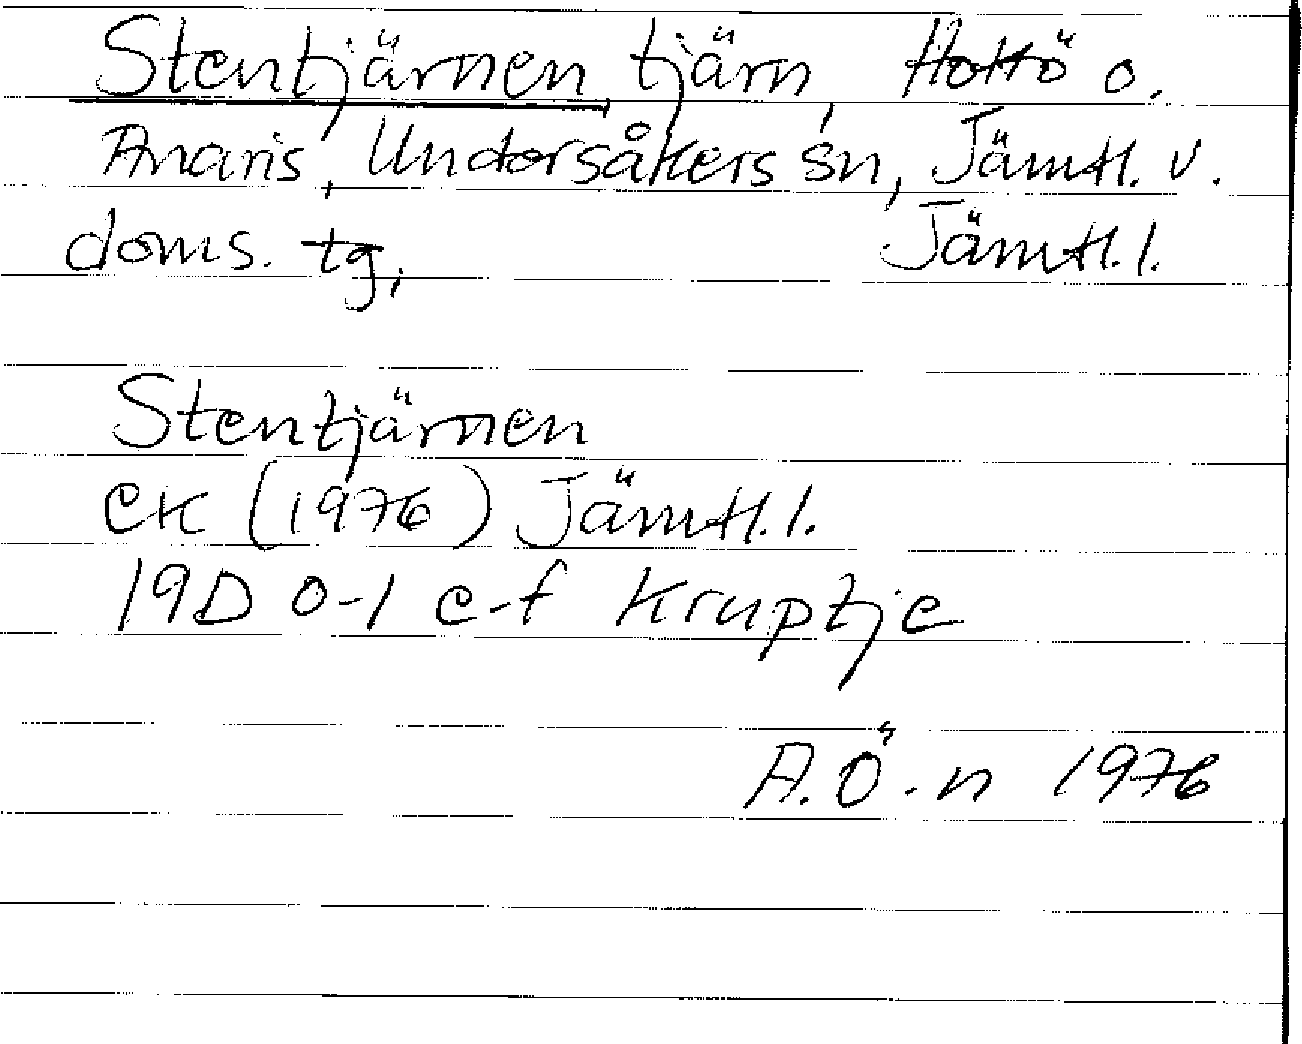 Stentjärnen, tjärn, Hottö o.
Anaris, Undersåkers sn, Jämtl. v.
doms. tg, Jämtl. l.
Stentjärnen
EK (1976) Jämtl. l.
19D 0-1 e-f Kruptje
A. Ö-n 1976